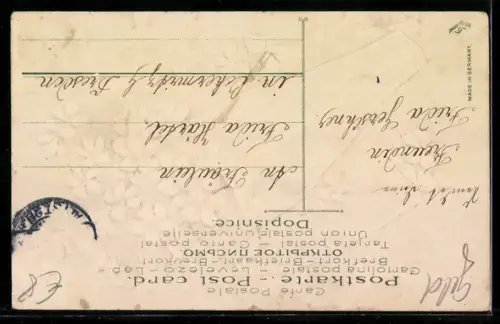 Carte Postale
Postkarte. Post card.
Cartolina postale — Levelező-Lap
Brefkort — Briefkaart — Brevkort
ОТКРЫТОЕ ПИСЬМО.
Tarjeta postal — Carto postal
Union postale universelle
Dopisnice.
An Fräulein
Frida Härtel
in
Dresden
Freundin
Frida
MADE IN GERMANY.
Geld